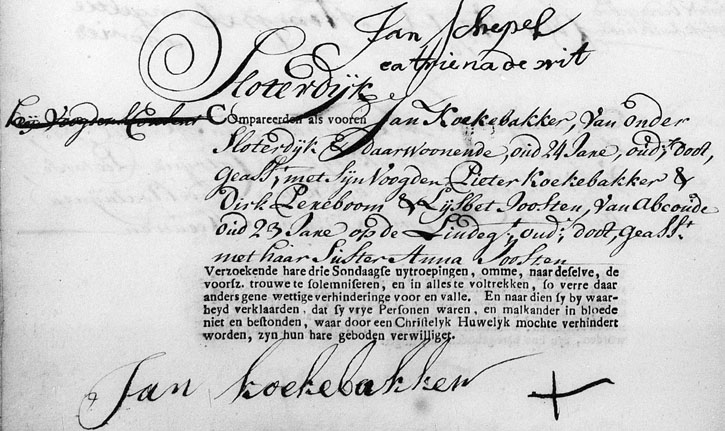 Jan Schepel
catriena de wit
Sloterdijk
Voogden
Compareerden als vooren Jan Koekebakker, Van onder
Sloterdijk & Daar Woonende, oud 24 Jare, oud:s doot,
geass:t met sijn Voogden Pieter Koekebakker &
Dirk Pereboom & Lijsbet Joosten, Van Abcoude
oud 23 Jare op de Lindegt: oud:s doot, geasst
met haar Suster Anna Joosten
Verzoekende hare drie Sondaagse uytroepingen, omme, naar deselve, de
voorsz. trouwe te solemniseren, en in alles te voltrekken, so verre daar
anders gene wettige verhinderinge voor en valle. En naar dien sy by waar-
heyd verklaarden, dat sy vrye Personen waren, en malkander in bloede
niet en bestonden, waar door een Christelyk Huwelyk mochte verhindert
worden, zyn hun hare geboden verwilliget.
Jan koekebakker